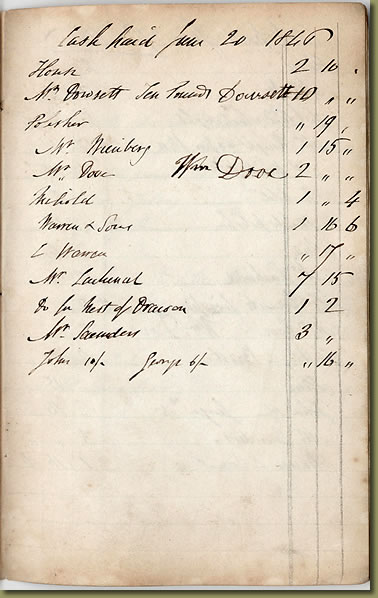 Cash Paid June 20 1846
House 2 10 .
Mr Dowsett Ten Pounds Dowsett 10 " "
Polisher " 19 ,
Mr Weinberg 1 15 "
Mr Dove Wm Dove 2 " "
1 " 4
Warren & Sons 1 16 6
C Warren " 17 "
Mr Lachenal 7 15
Do for Nest of 1 2
Mr Saunders 3 "
John 10/- George 6/- " 16 "